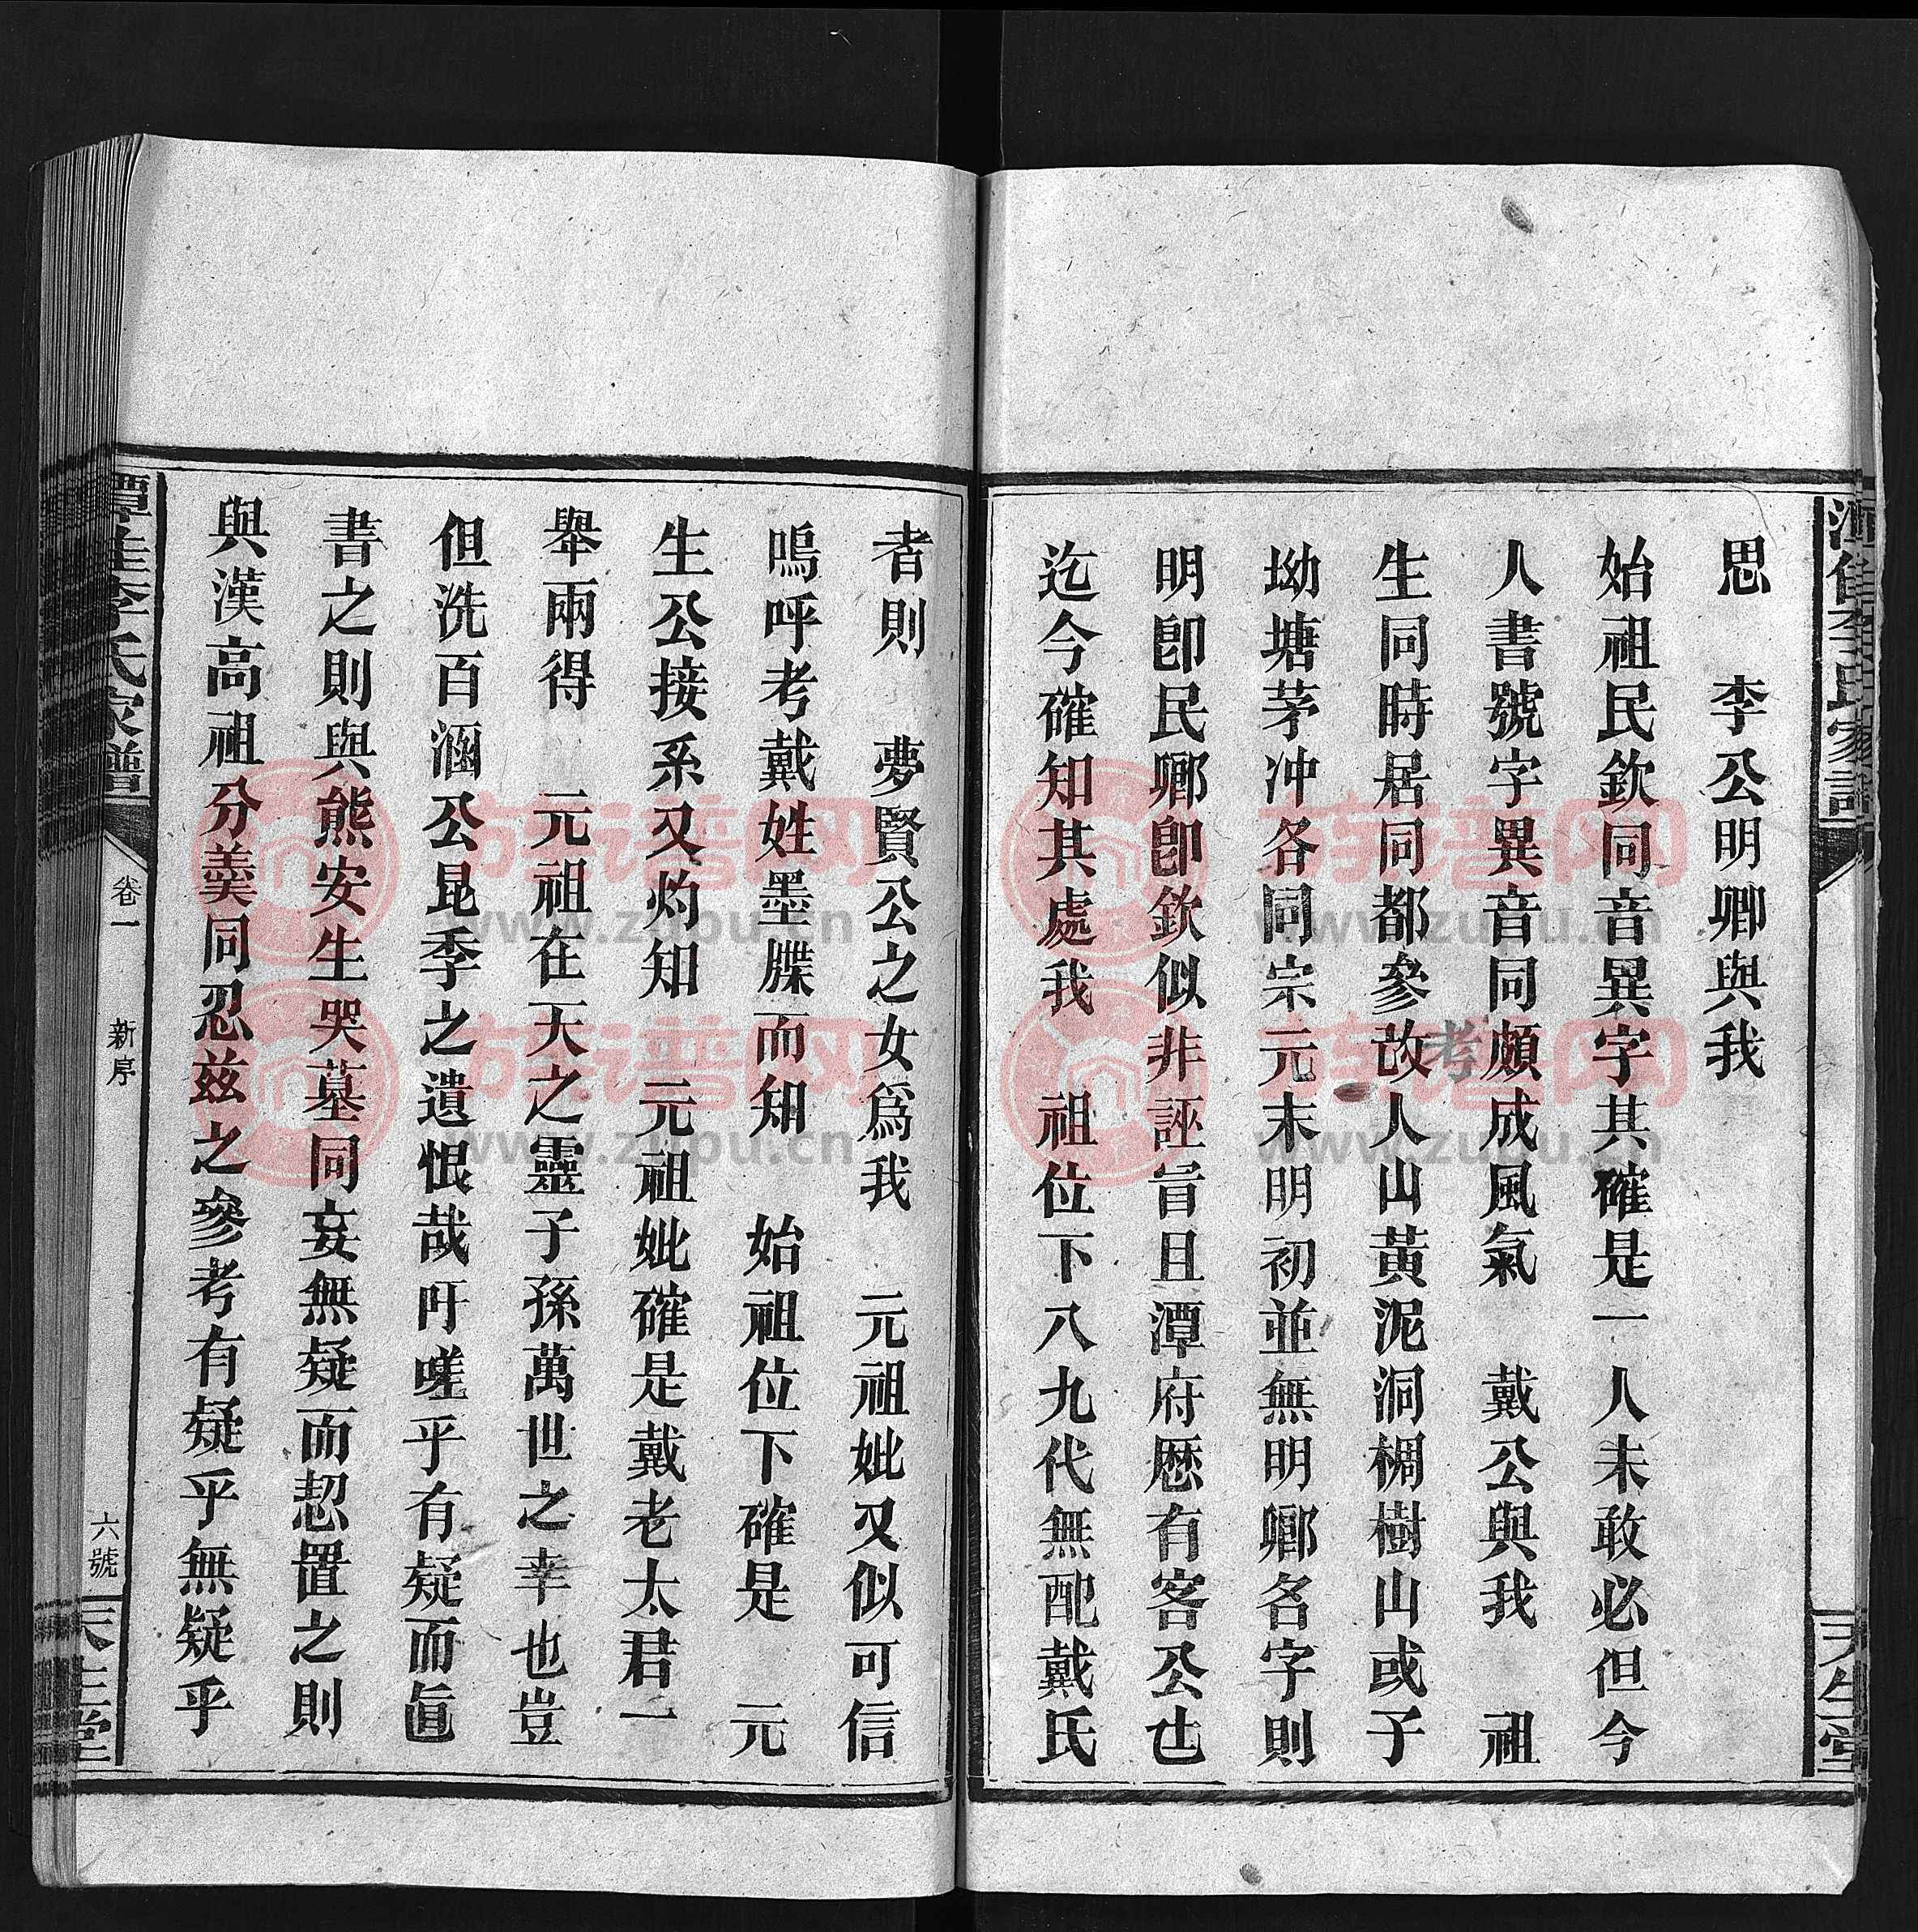 思　李公明卿與我
始祖民欽同音異字其確是一人未敢必但今
人書號字異音同頗成風氣　戴公與我　祖
考
生同時居同都參改人山黃泥洞椆樹山或子
坳塘茅冲各同宗元末明初並無明鄉名字則
明卽民鄉卽欽似非誣旨且潭府歴有客公也
迄今確知其處我　祖位下八九代無配戴氏
者則　夢賢公之女爲我　元祖妣又似可信
嗚呼考戴姓墨牒而知　始祖位下確是　元
生公接系又灼知　元祖妣確是戴老太君一
舉兩得　元祖在天之靈子孫萬世之幸也豈
但洗百涵公昆季之遺恨哉吁嗟乎有疑而眞
書之則與熊安生哭墓同妄無疑而恝置之則
與漢高祖分羹同忍兹之參考有疑乎無疑乎
李氏家譜
卷一
新序
六號
天生堂
族谱网
www.zupu.cn
族谱网
www.zupu.cn
族谱网
www.zupu.cn
族谱网
www.zupu.cn